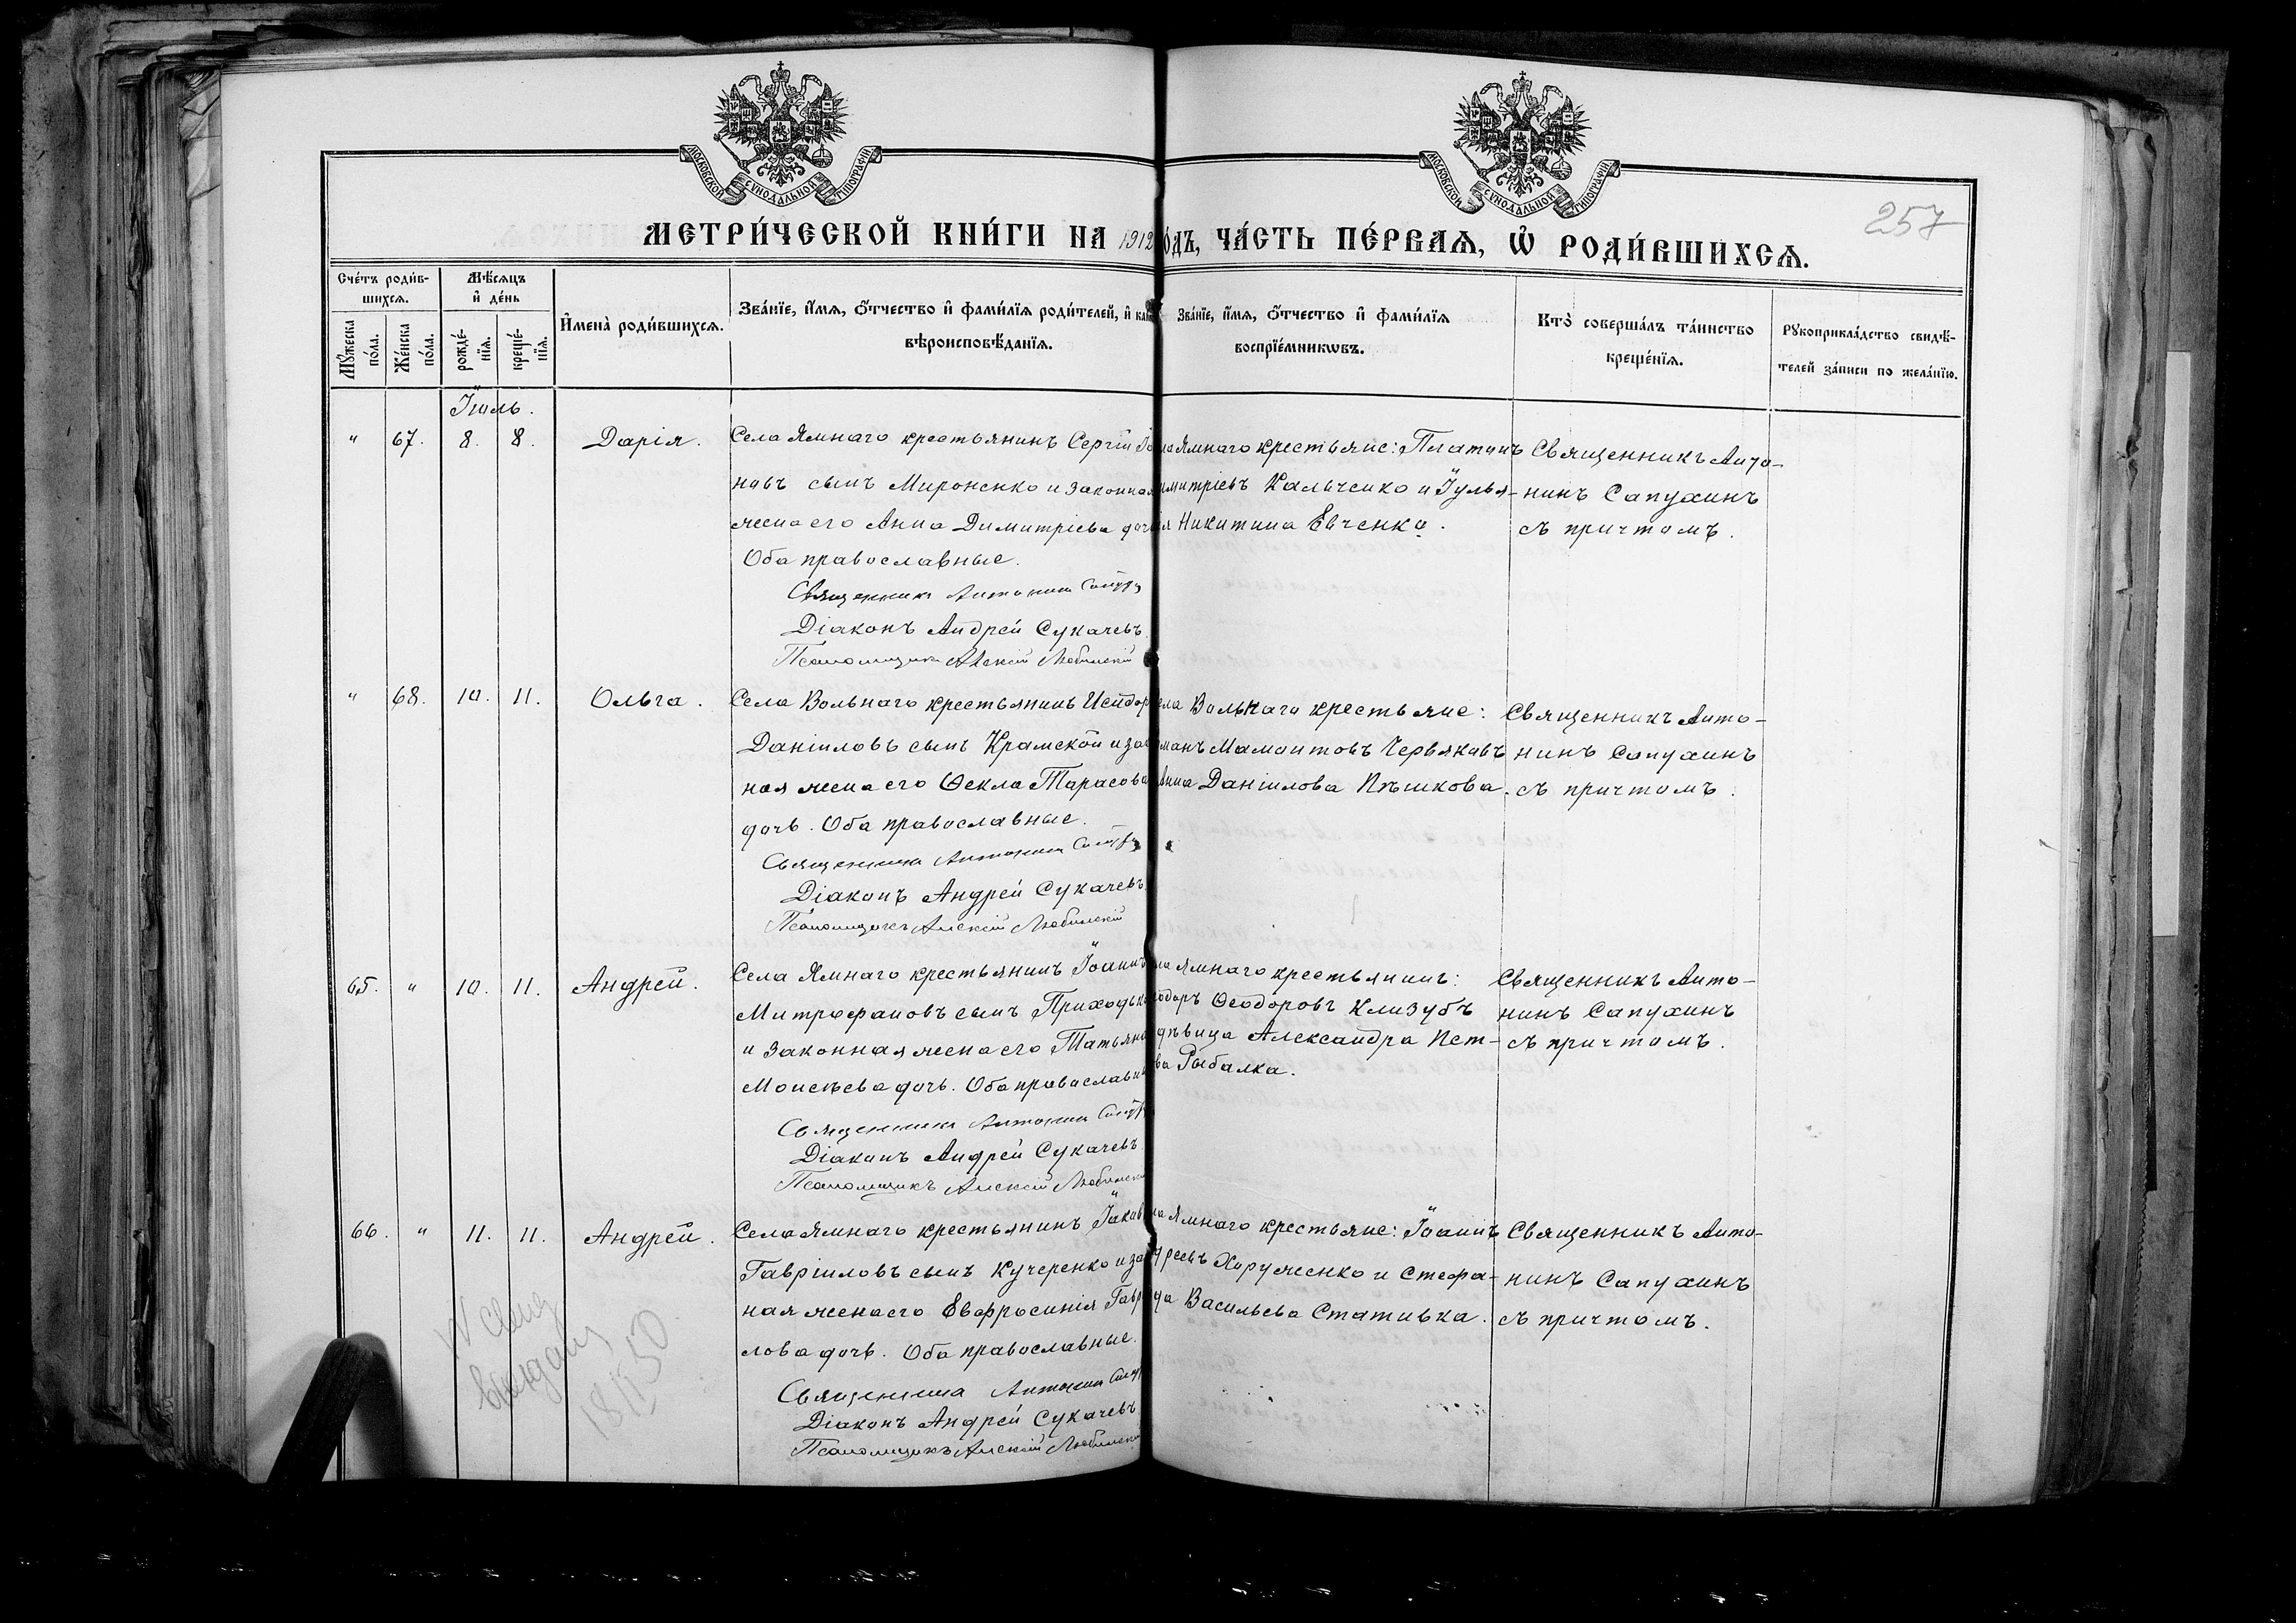 МОСКОВСКОЙ СѴНОДАЛЬНОЙ ТИПОГРАФІИ
МОСКОВСКОЙ СѴНОДАЛЬНОЙ ТИПОГРАФІИ
257
МЕТРИ́ЧЕСКОЙ КНИ́ГИ НА 1912 ГОДЪ, ЧА́СТЬ ПЕ́РВАѦ, Ѽ РОДИ́ВШИХСѦ.
Сче́тъ роди́в-
шихсѧ.
Мѣ́сѧцъ
и҆ де́нь
Мꙋ́жеска
по́ла.
Же́нска
по́ла.
рожде́-
нїѧ.
креще́-
нїѧ.
И҆мена̀ роди́вшихсѧ.
Зва́нїе, и҆́мѧ, ѻ҆́тчество и҆ фами́лїѧ роди́телей, и҆ как
вѣроисповѣ́данїѧ.
Зва́нїе, и҆́мѧ, ѻ҆́тчество и҆ фами́лїѧ
воспрїе́мникѡвъ.
Кто̀ соверша́лъ та́инство
креще́нїѧ.
Рꙋкоприкла́дство свидѣ́-
телей за́писи по жела́нїю.
Іюль.
" 67. 8. 8. Дарія.
Села Ямнаго крестьянинъ Сергій Іо
новъ сынъ Мироненко и законная
жена его Анна Димитріева доч
Оба православные.
Священникъ Антонин Сапух
Діаконъ Андрей Сукачевъ
Псаломщикъ Алексій Любинскій
ла Ямнаго крестьяне: Платонъ
имитріевъ Кальченко и Іулья-
я Никитина Евченко.
Священникъ Анто-
нинъ Сапухинъ
съ причтомъ.
" 68. 10. 11. Ольга.
Села Вольнаго крестьянинъ Исидор
Даніиловъ сынъ Крамской и зак
ная жена его Ѳекла Тарасова
дочь. Оба православные.
Священникъ Антонин Сапух
Діаконъ Андрей Сукачевъ
Псаломщикъ Алексій Любинскій
ела Вольнаго крестьяне:
манъ Мамонтовъ Червяковъ
Даніилова Пѣшкова.
Священникъ Анто-
нинъ Сапухинъ
съ причтомъ.
65. " 10. 11. Андрей.
Села Ямнаго крестьянинъ Іоаннъ
Митрофановъ сынъ Приходько
и законная жена его Татьяна
Моисѣева дочь. Оба православны
Священникъ Антонин Сапух
Діаконъ Андрей Сукачевъ
Псаломщикъ Алексій Любински
ла Ямнаго крестьянинъ:
еодоръ Ѳеодоровъ Клизубъ
дѣвица Александра Пет-
ва Рыбалка.
Священникъ Анто-
нинъ Сапухинъ
съ причтомъ.
66. " 11. 11. Андрей.
Села Ямнаго крестьянинъ Іаков
Гавріиловъ сынъ Кучеренко и зак
ная жена его Евфросинія Гавр
лова дочь. Оба православные.
Священникъ Антонин Сапух
Діаконъ Андрей Сукачевъ
Псаломщикъ Алексій Любински
ла Ямнаго крестьяне: Іоаннъ
дреевъ Хоруженко и Стефа-
да Васильева Стативка.
Священникъ Анто-
нинъ Сапухинъ
съ причтомъ.
50